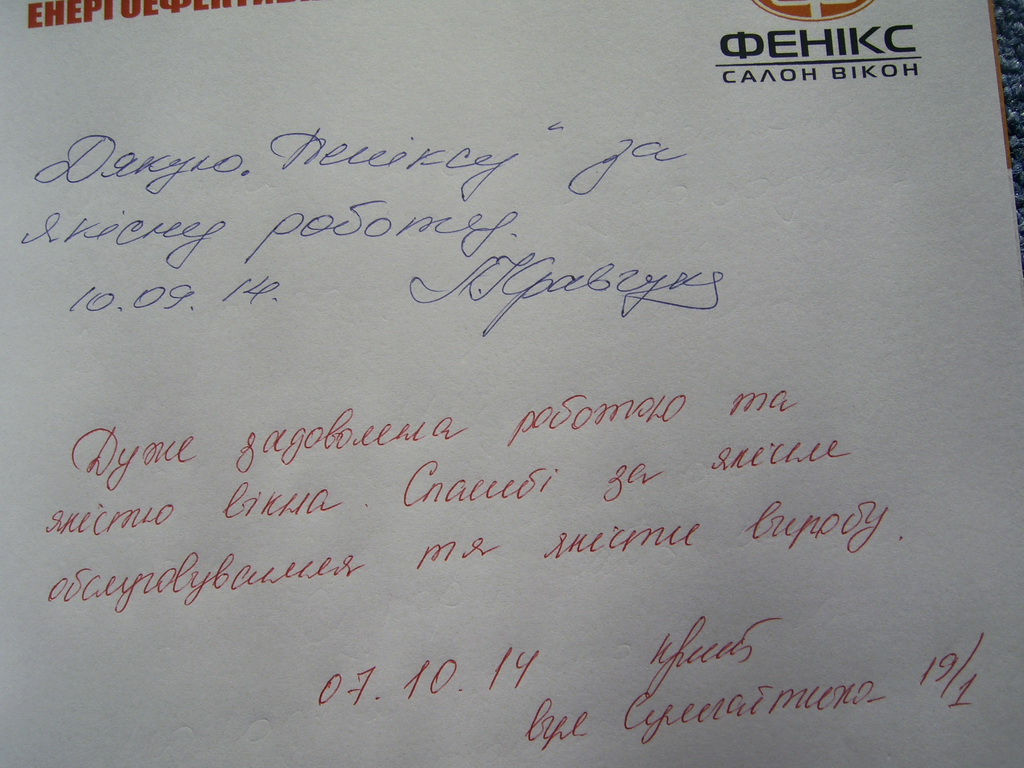 ФЕНІКС
САЛОН ВІКОН
Дякую „Феніксу" за
якісну роботу.
10.09.14. Л.Кравчук
Дуже задоволена роботою та
якістю вікна. Спасибі за якісне
обслуговування та якісти виробу.
07.10.14
вул 19/1